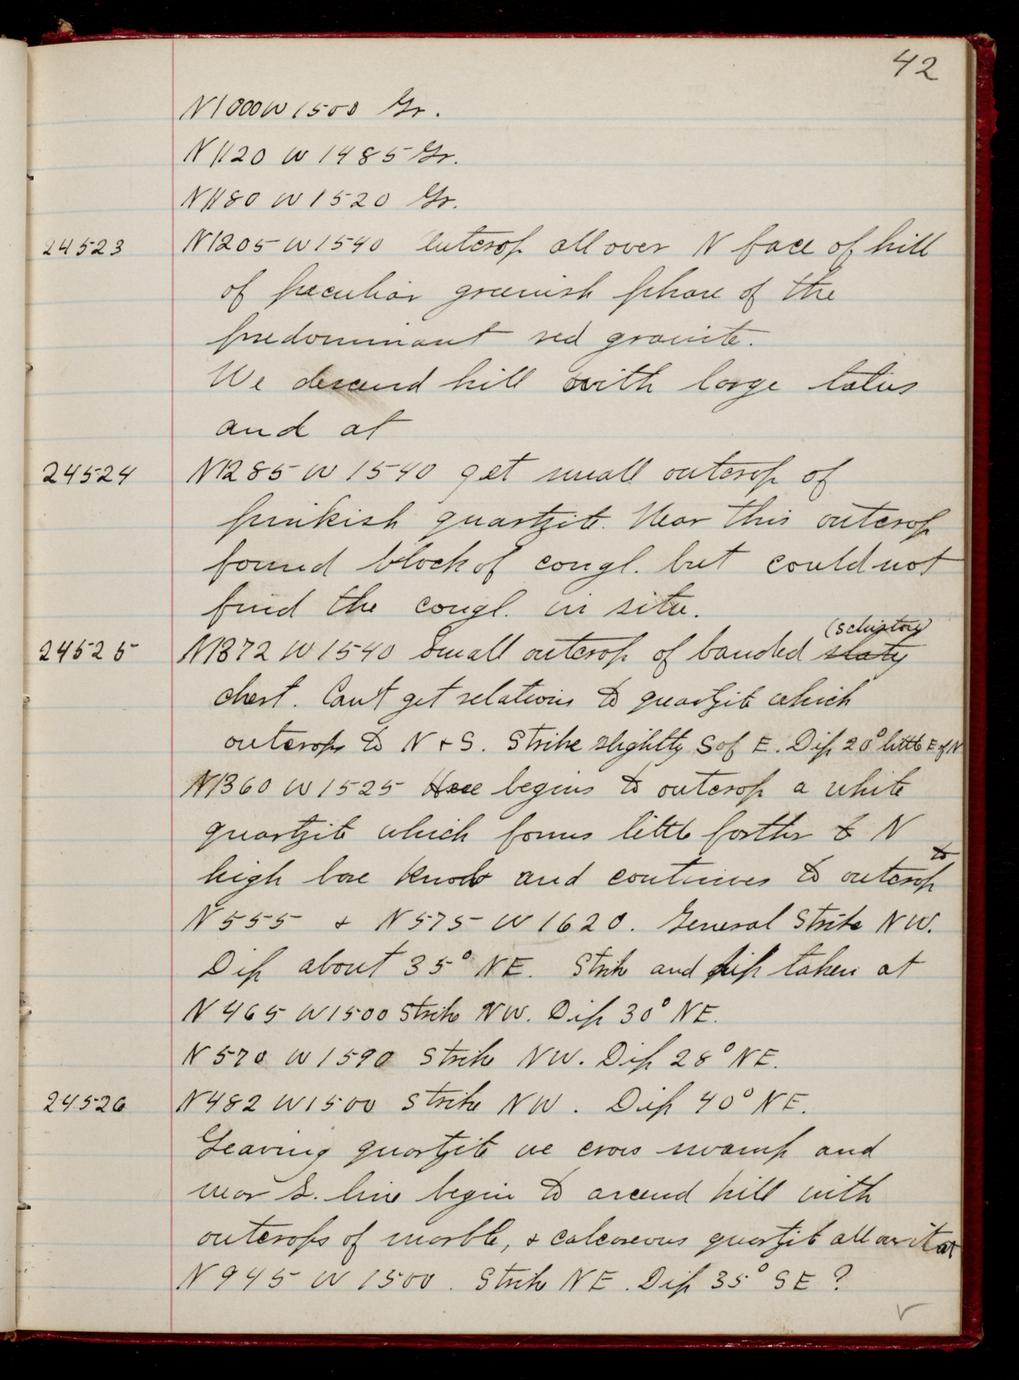 42
N1000 W1500 Gr.
N1120 W1485 Gr.
N1180 W1520 Gr.
24523 N1205 W1540 Outcrop all over N face of hill
of peculiar greenish phase of the
predominant red granite.
We descend hill with large talus
and at
24524 N1285 W1540 get small outcrop of
pinkish quartzite. Near this outcrop
found block of congl. but could not
find the congl. in situ.
(schistose)
24525 N1372 W1540 Small outcrop of banded slaty
chert. Can't get relations to quartzite which
outcrops to N & S. Strike slightly S of E. Dip 20° little E of N
N1360 W1525 Here begins to outcrop a white
quartzite which forms little farther to N
high bare knob and continues to outcrop to
N555 & N575 W1620. General Strike NW.
Dip about 35° NE. Strike and dip taken at
N465 W1500 Strike NW. Dip 30° NE.
N570 W1590 Strike NW. Dip 28° NE.
24526 N482 W1500 Strike NW. Dip 40° NE.
Leaving quartzite we cross swamp and
near S. line begin to ascend hill with
outcrops of marble, & calcareous quartzite all over it at
N945 W1500. Strike NE. Dip 35° SE?